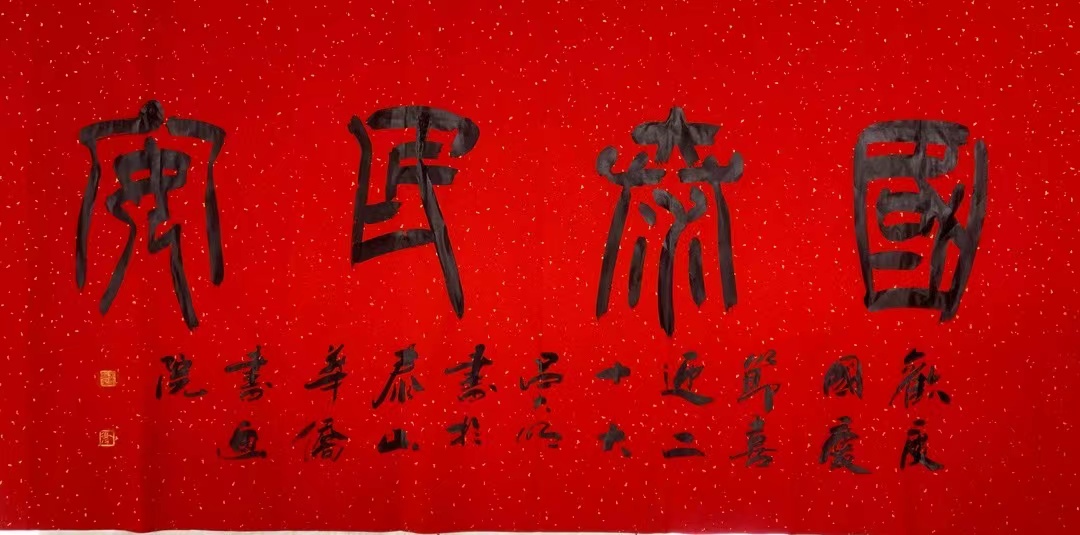 國泰民安
歡度
國慶
節喜
迎二
十大
書於
泰山
華僑
書画
院